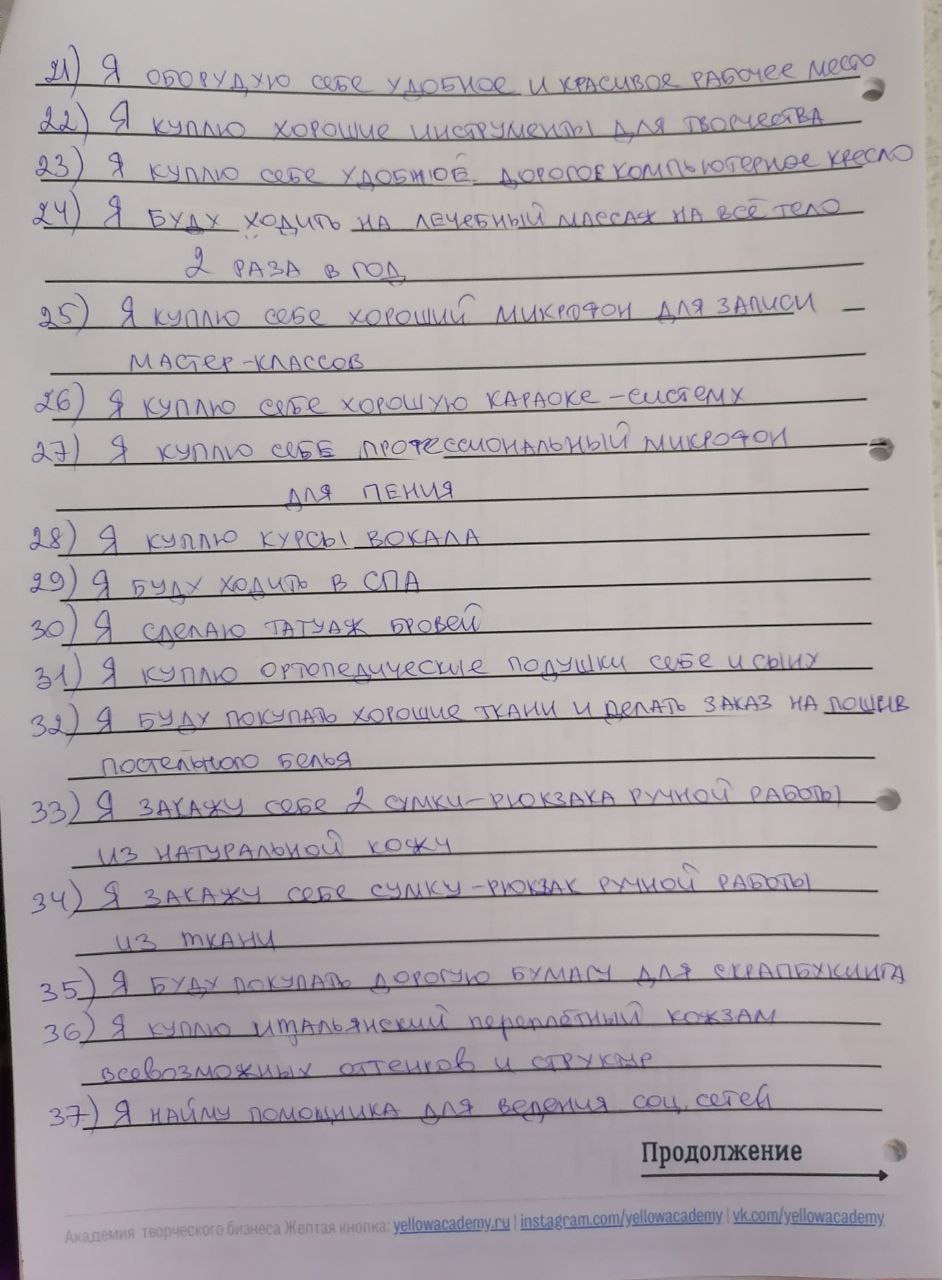 21) Я ОБОРУДУЮ СЕБЕ УДОБНОЕ И КРАСИВОЕ РАБОЧЕЕ МЕСТО
22) Я КУПЛЮ ХОРОШИЕ ИНСТРУМЕНТЫ ДЛЯ ТВОРЧЕСТВА
23) Я КУПЛЮ СЕБЕ УДОБНОЕ ДОРОГОЕ КОМПЬЮТЕРНОЕ КРЕСЛО
24) Я БУДУ ХОДИТЬ НА ЛЕЧЕБНЫЙ МАССАЖ НА ВСЁ ТЕЛО
2 РАЗА В ГОД
25) Я КУПЛЮ СЕБЕ ХОРОШИЙ МИКРОФОН ДЛЯ ЗАПИСИ
МАСТЕР-КЛАССОВ
26) Я КУПЛЮ СЕБЕ ХОРОШУЮ КАРАОКЕ-СИСТЕМУ
27) Я КУПЛЮ СЕБЕ ПРОФЕССИОНАЛЬНЫЙ МИКРОФОН
ДЛЯ ПЕНИЯ
28) Я КУПЛЮ КУРСЫ ВОКАЛА
29) Я БУДУ ХОДИТЬ В СПА
30) Я СДЕЛАЮ ТАТУАЖ БРОВЕЙ
31) Я КУПЛЮ ОРТОПЕДИЧЕСКИЕ ПОДУШКИ СЕБЕ И СЫНУ
32) Я БУДУ ПОКУПАТЬ ХОРОШИЕ ТКАНИ И ДЕЛАТЬ ЗАКАЗ НА ПОШИВ
ПОСТЕЛЬНОГО БЕЛЬЯ
33) Я ЗАКАЖУ СЕБЕ 2 СУМКИ-РЮКЗАКА РУЧНОЙ РАБОТЫ
ИЗ НАТУРАЛЬНОЙ КОЖИ
34) Я ЗАКАЖУ СЕБЕ СУМКУ-РЮКЗАК РУЧНОЙ РАБОТЫ
ИЗ ТКАНИ
35) Я БУДУ ПОКУПАТЬ ДОРОГУЮ БУМАГУ ДЛЯ СКРАПБУКИНГА
36) Я КУПЛЮ ИТАЛЬЯНСКИЙ ПЕРЕПЛЁТНЫЙ КОЖЗАМ
ВСЕВОЗМОЖНЫХ ОТТЕНКОВ И СТРУКТУР
37) Я НАЙМУ ПОМОЩНИКА ДЛЯ ВЕДЕНИЯ СОЦ. СЕТЕЙ
Продолжение
Академия творческого бизнеса Желтая кнопка: yellowacademy.ru | instagram.com/yellowacademy | vk.com/yellowacademy